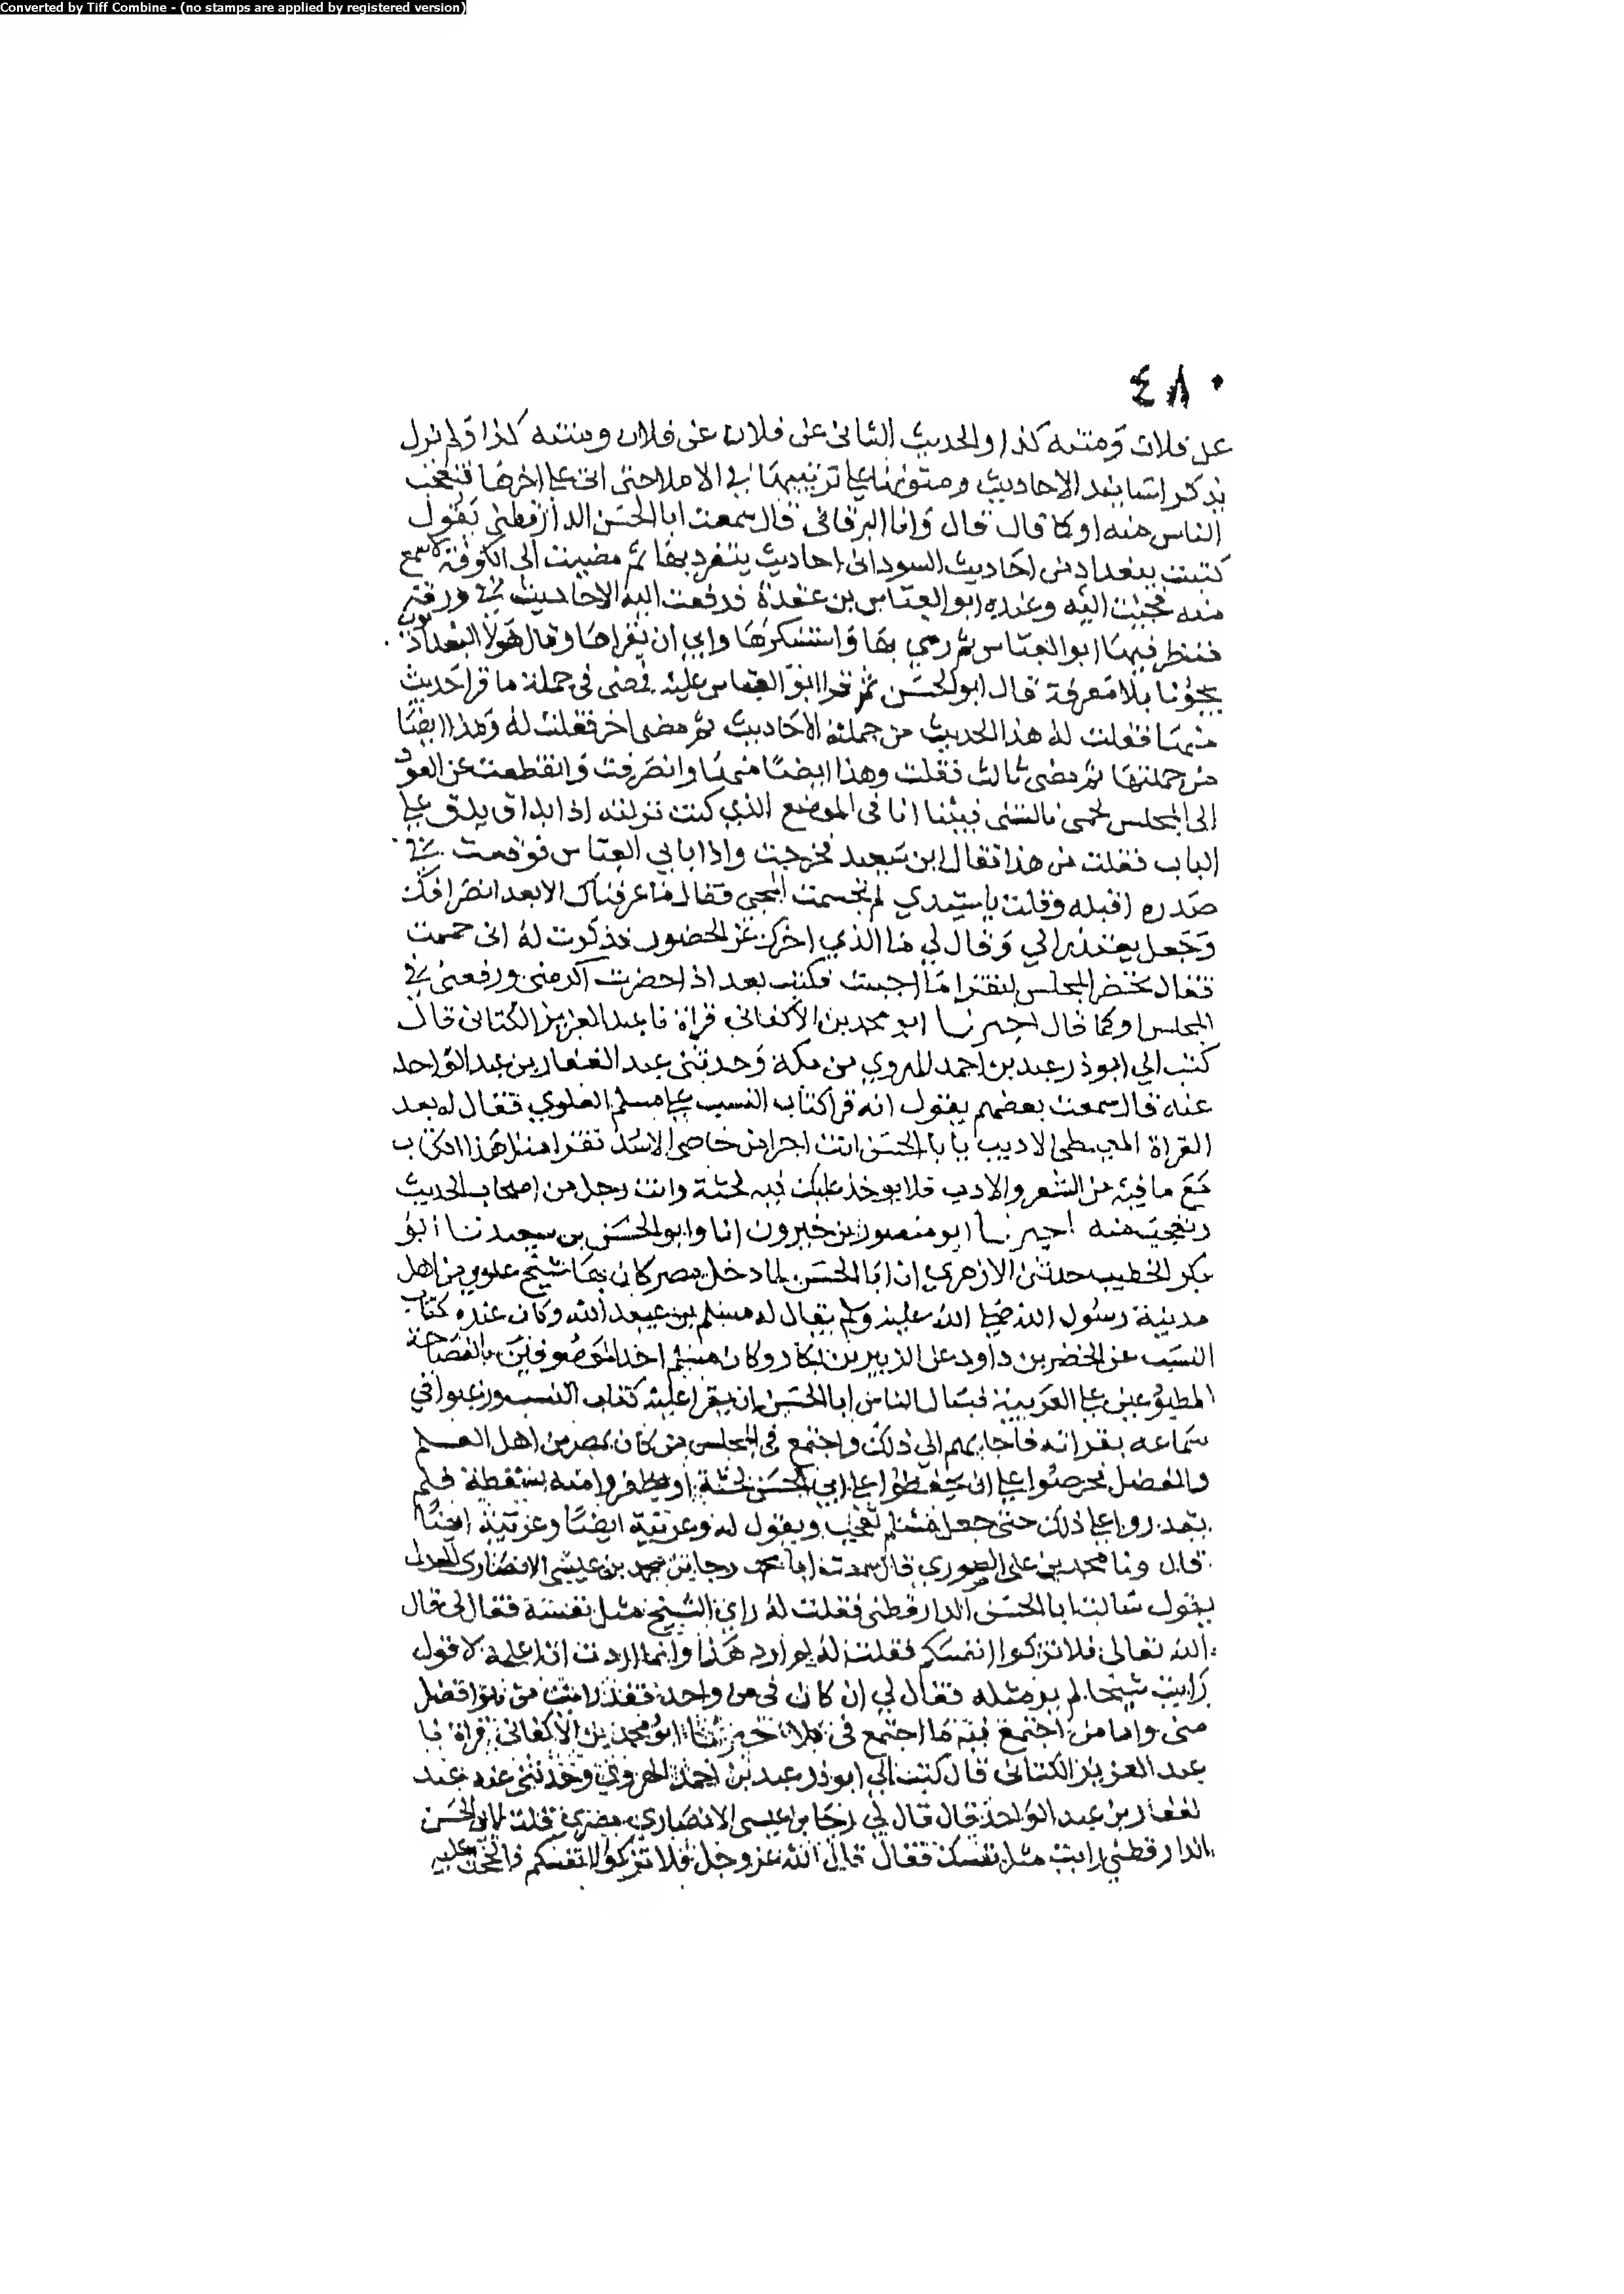 Converted by Tiff Combine - (no stamps are applied by registered version)
٤٨٠
عن فلان ومتنه كذا والحديث الثاني عن فلان عن فلان ومتنه كذا ولم يزل
يذكر اسانيد الاحاديث ومتونها على ترتيبها في الاملا حتى اتى على اخرها فتعجب
الناس منه او كما قال قال وانا البرقاني قال سمعت ابا الحسن الدارقطني يقول
كتبت ببغداد من احاديث السوداني احاديث يتفرد بها ثم مضيت الى الكوفة لاسمع
منه فجئت اليه وعنده ابو العباس بن عقدة فدفعت اليه الاحاديث في ورقة
فنظر فيها ابو العباس ثم رمى بها واستنكرها وابى ان يقراها وقال هولا البغداذيون
يجؤنا بلا معرفة قال ابو الحسن ثم قرا ابو العباس عليه فمضى في جملة ما قرا حديث
منها فقلت له هذا الحديث من جملة الاحاديث ثم مضى اخر فقلت له وهذا ايضا
من جملتها ثم مضى ثالث فقلت وهذا ايضا منها وانصرفت وانقطعت عن العود
الى المجلس لحمى نالتني فبينا انا في الموضع الذي كنت نزلته اذا بداق يدق علي
الباب فقلت من هذا فقال ابن سعيد فخرجت واذا بابي العباس فوقعت في
صدره اقبله وقلت يا سيدي لم تجشمت المجي فقال ما عرفناك الا بعد انصرافك
وجعل يعتذر الي وقال لي ما الذي اخرك عن الحضور فذكرت له اني حممت
فقال تحضر المجلس لتقرا ما احببت فكنت بعد اذا حضرت اكرمني ورفعني في
المجلس او كما قال اخبرنا ابو محمد بن الاكفاني قراة نا عبد العزيز الكتاني قال
كتب الي ابو ذر عبد بن احمد الهروي من مكة وحدثني عبد الغفار بن عبد الواحد
عنه قال سمعت بعضهم يقول انه قرا كتاب النسب على مسلم العلوي فقال له بعد
القراة المعيطي الاديب يا با الحسن انت اجرا من خاصي الاسد تقرا مثل هذا الكتاب
مع ما فيه من الشعر والادب فلا يوخذ عليك فيه لحنة وانت رجل من اصحاب الحديث
وتعجب منه اخبرنا ابو منصور بن خيرون انا وابو الحسن بن سعيد نا ابو
بكر الخطيب حدثني الازهري ان ابا الحسن لما دخل مصر كان بها شيخ علوي من اهل
مدينة رسول الله صلى الله عليه وسلم يقال له مسلم بن عبيد الله وكان عنده كتاب
النسب عن الخضر بن داود عن الزبير بن بكار وكان مسلم احد الموصوفين بالفصاحة
المطبوعين على العربية فسال الناس ابا الحسن ان يقرا عليه كتاب النسب ورغبوا في
سماعه بقراته فاجابهم الى ذلك واجتمع في المجلس من كان بمصر من اهل العلم
والفضل فحرصوا على ان يحفظوا على ابي الحسن لحنة او يظفروا منه بسقطة فلم
يقدروا على ذلك حتى جعل مسلم تعجب ويقول له وعربية ايضا وعربية ايضا
قال ونا محمد بن علي الصوري قال سمعت ابا محمد رجا بن محمد بن عيسى الانصاري المعدل
يقول سالت ابا الحسن الدارقطني فقلت له راى الشيخ مثل نفسه فقال لي قال
الله تعالى فلا تزكوا انفسكم فقلت له لم ارد هذا وانما اردت ان اعلمه لاقول
رايت شيخا لم ير مثله فقال لي ان كان في فن واحد فقد رايت من هو افضل
مني واما من اجتمع فيه ما اجتمع في فلا اخبرنا ابو محمد بن الاكفاني قراة نا
عبد العزيز الكتاني قال كتب الي ابو ذر عبد بن احمد الهروي وحدثني عنه عبد
الغفار بن عبد الواحد قال قال لي رجا بن عيسى الانصاري مصري قلت لابي الحسن
الدارقطني رايت مثل نفسك فقال قال الله عز وجل فلا تزكوا انفسكم فالححت عليه